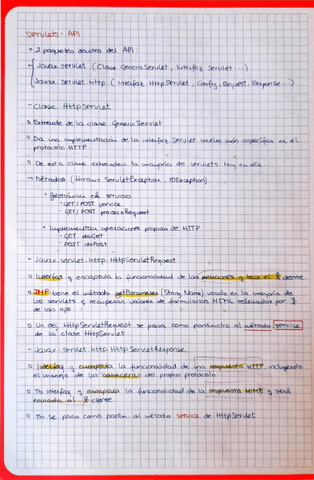 Servlets - API
2 paquetes dentro del API
Javax. servlet (Clase GenericServlet, Interfaz Servlet...)
Javax. servlet. http (Interfaz HttpServlet, Config, Request, Response...)
- Clase HttpServlet
Extiende de la clase GenericServlet
Da una implementación de la interfaz Servlet mucho más específica en el
protocolo HTTP
De esta clase extienden la mayoría de servlets hoy en día
- Métodos (throws ServletException, IOException)
* Gestionan el servicio
- GET/POST service
- GET/POST processRequest
* Implementan operaciones propias de HTTP
- GET doGet
- POST doPost
- Javax. servlet. http. HttpServletRequest
Interfaz y encapsula la funcionalidad de las peticiones q hace el cliente
IMP tiene el método getParameter (String Name) usado en la mayoría de
los servlets y recuperan valores de formularios HTML rellenados por
de las aps
Un obj HttpServletRequest se pasa como parámetro al método service
de la clase HttpServlet
- Javax. servlet. http. HttpServletResponse
Interfaz y encapsula la funcionalidad de una respuesta HTTP, incluyendo
el manejo de las cabeceras del propio protocolo
Tb interfaz y encapsula la funcionalidad de la respuesta HTTP y será
enviada al cliente
Tb se pasa como parám. al método service de HttpServlet